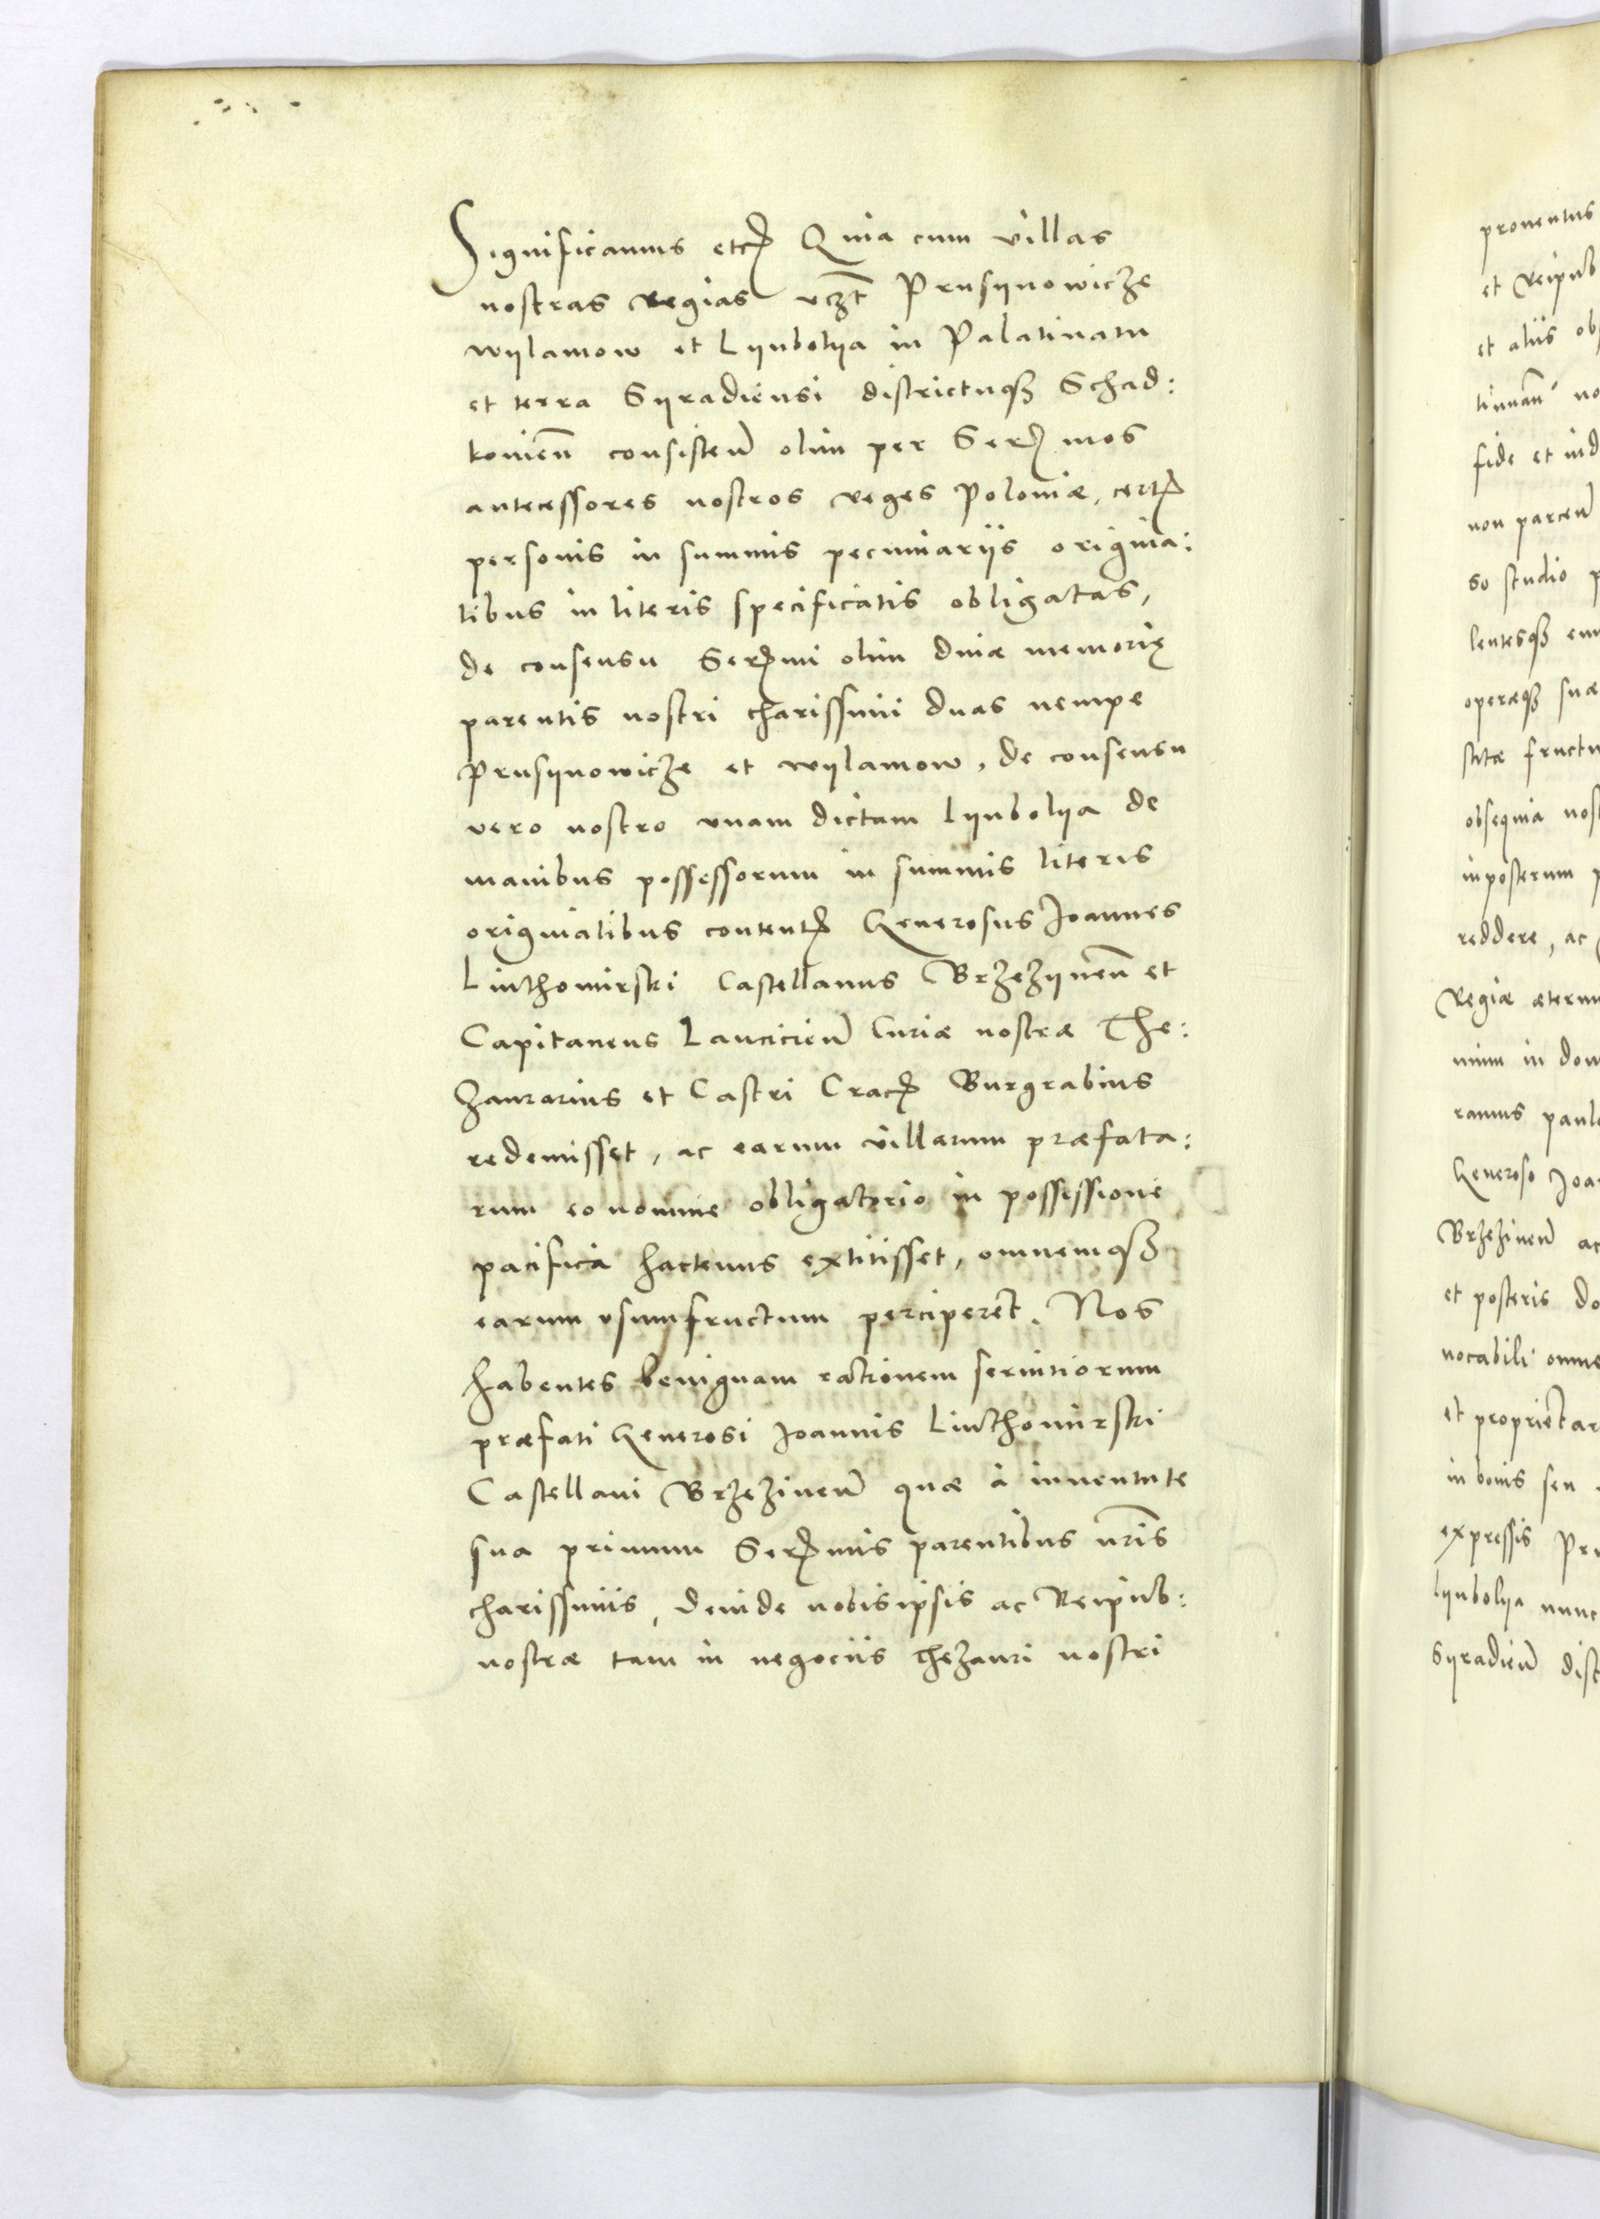 Significamus etc̄ Quia cum villas
nostras Regias vczt Prusÿnowicze
wÿlamow et Lÿnbolÿa in Palatinatu
et terra Sÿradiensi districtuqꝫ Schad:
kovien̄ consisten̄ olim per Ser̄mos
antecessores nostros reges Poloniæ, cert̄
personis in summis pecuniariis origina:
libus in literis specificatis obligatas,
de consensu Ser̄mi olim diuæ memorię
parentis nostri charissimi duas nempe
Prusÿnowicze et wÿlamow, de consensu
vero nostro vnam dictam lÿnbolÿa de
manibus possessorum in summis literis
originalibus content̄ Generosus Joannes
Liuthomirski Castellanus Brzezÿnen̄ et
Capitaneus Lancicien̄ Curiæ nostræ The:
zaurarius et Castri Crac̄ Burgrabius
redemisset, ac earum villarum præfata:
rum eo nomine obligatorio in possessione
pacifica hactenus extitisset, omnemqꝫ
earum vsumfructum perciperet. Nos
habentes benignam rationem seruitiorum
præfati Generosi Joannis Liuthomirski
Castellani Brzezinen̄ quæ à iuuentute
sua primum Ser̄mis parentibus nr̄is
charissimis, deinde nobisipsis ac Reipub:
nostræ tam in negociis thezauri nostri
prouentus
et Reipub
et aliis ob
tinuan̄ no
fide et ind
non parcen̄
so studio p
lentesqꝫ
operæqꝫ suæ
fructu
obsequia nos
inposterum p
reddere, ac
Regiæ æternu
in dom
ramus paulo
Generoso Joa
Brzezinen̄ ac
et posteris do
uocabili omne
et proprietar
in bonis seu
expressis Pru
lÿnbolÿa nunc
Sÿradien̄ dist